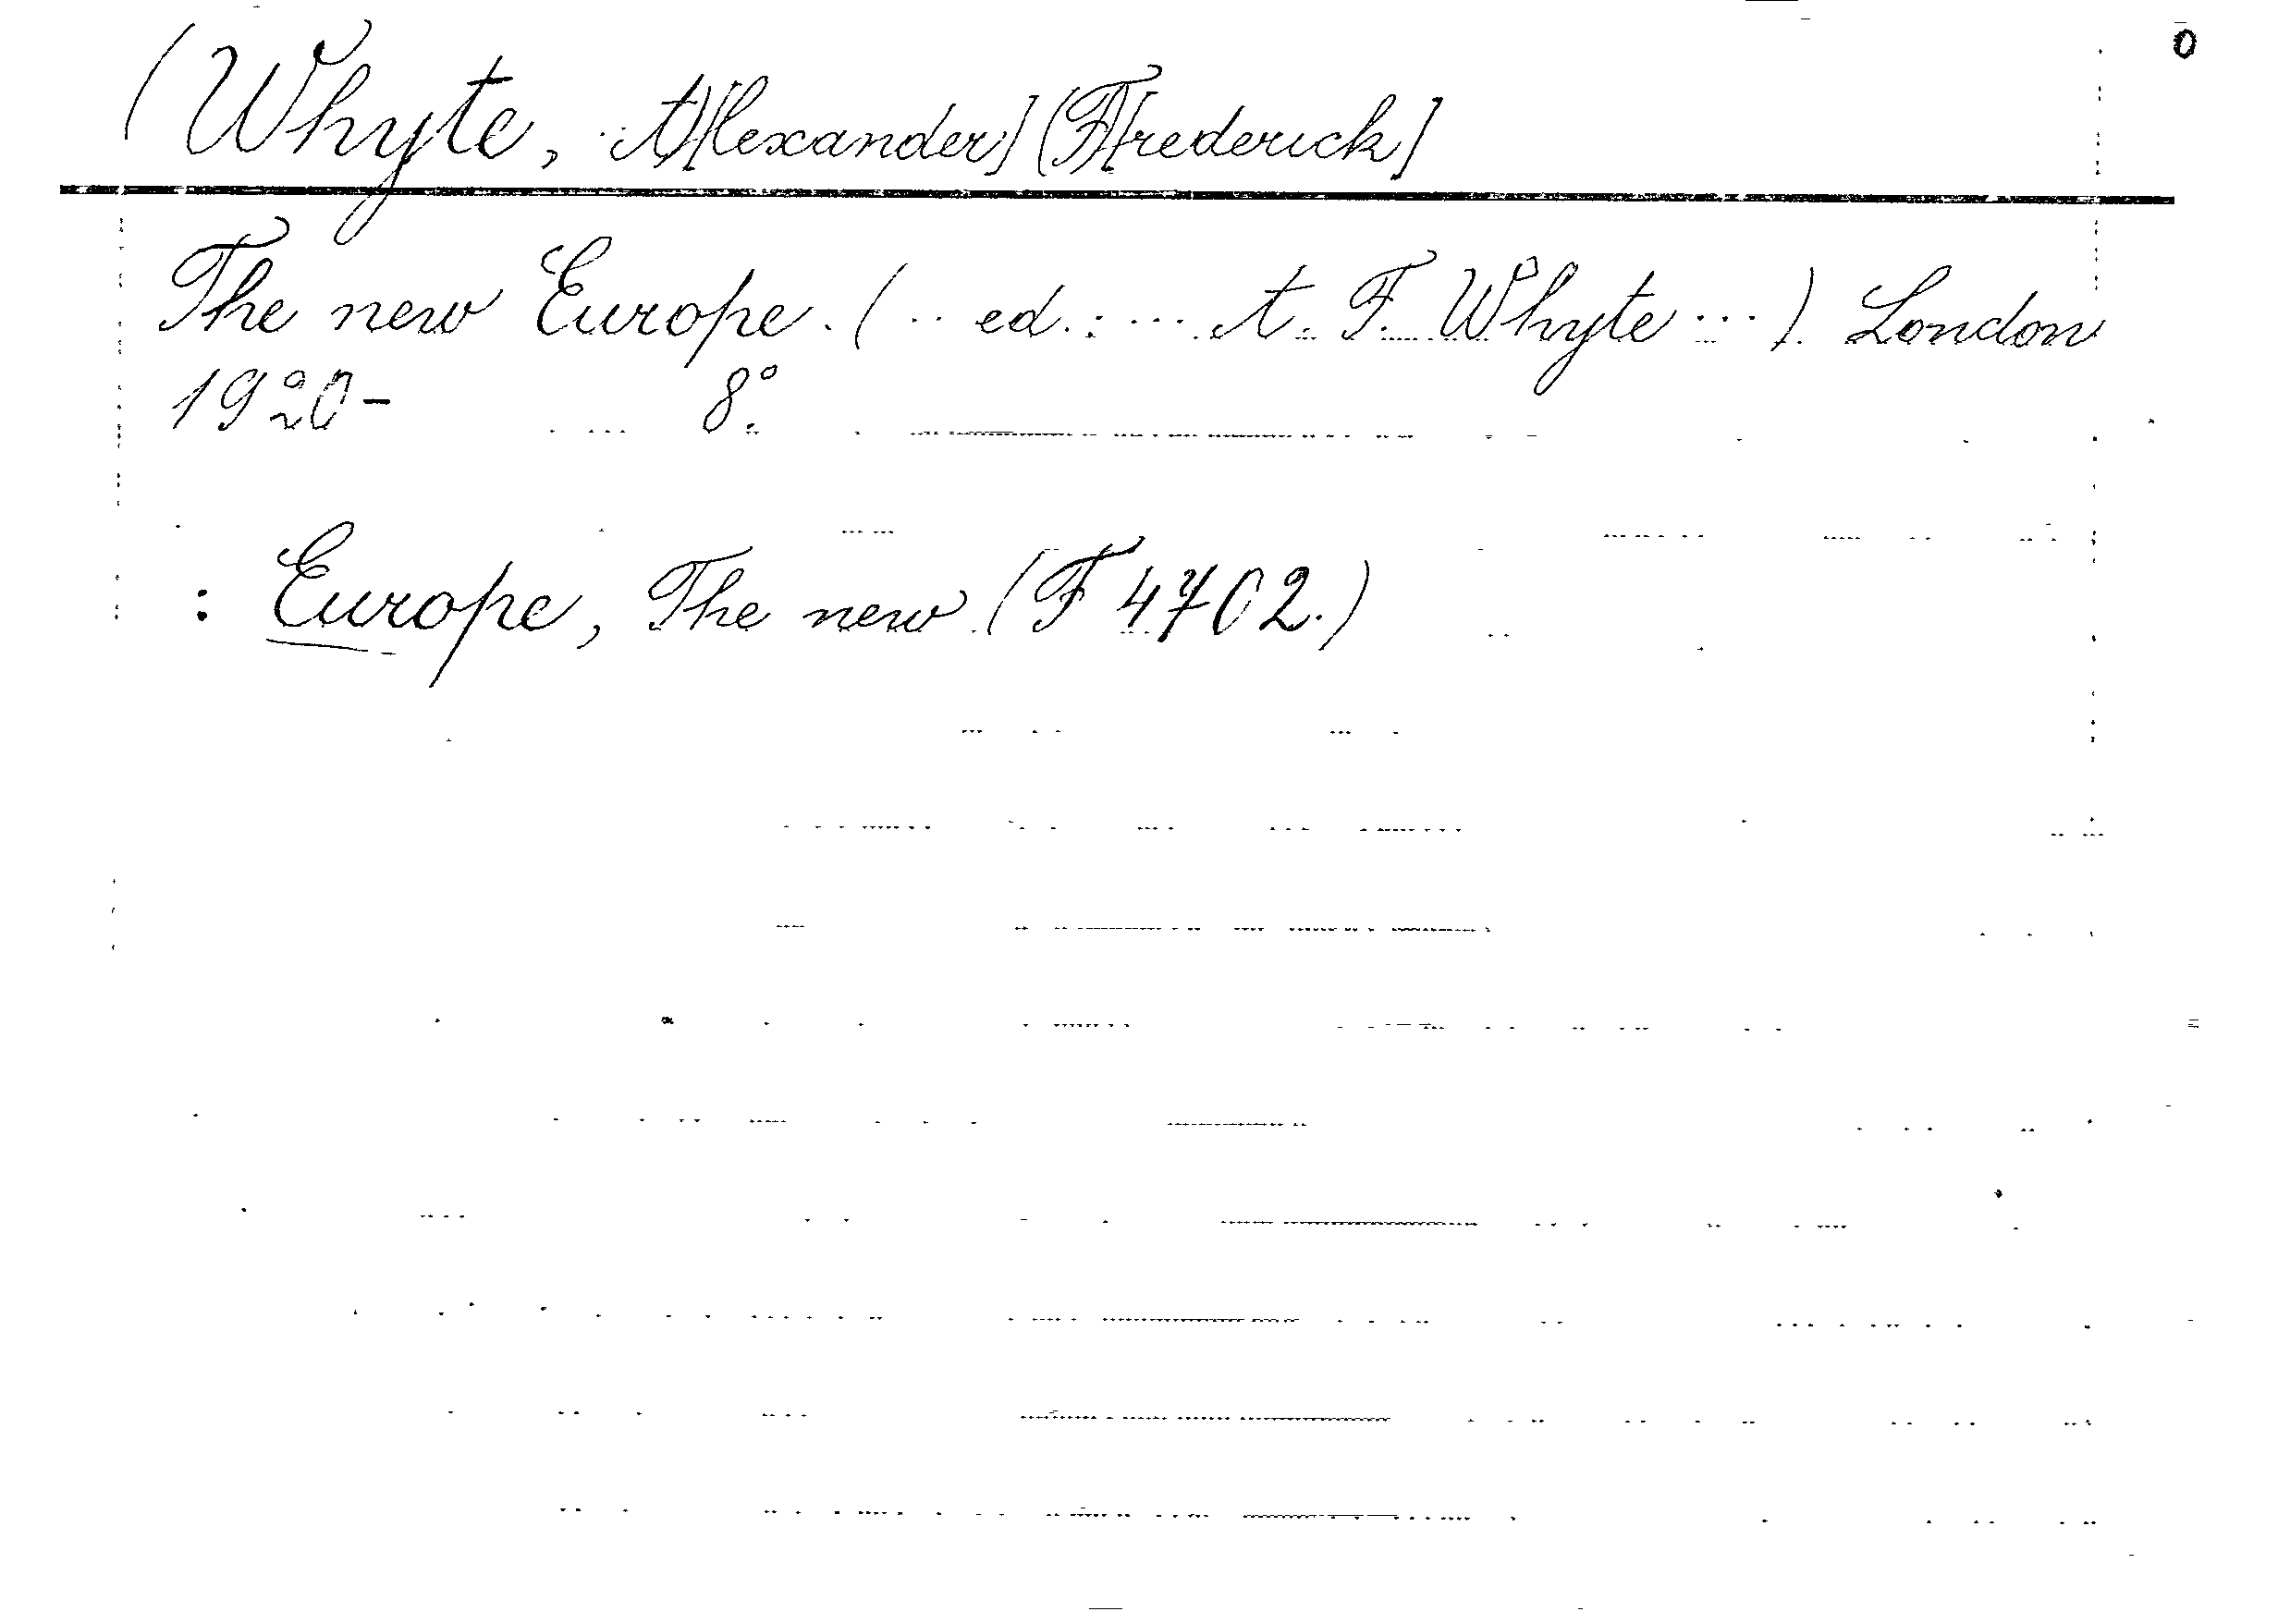 (Whyte, A)[lexander] (F)[rederick]
The new Europe. (·· ed.: ··· A. F. Whyte ···). London
1920- 8°.
: Europe, The new (F 4702.)